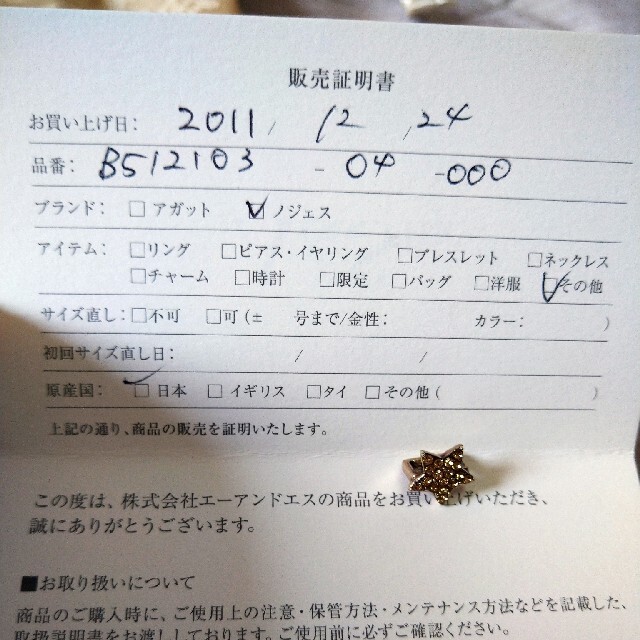 販売証明書
お買い上げ日: 2011 / 12 , 24
品番: B512103 - 04 -000
ブランド: □ アガット ☑ ノジェス
アイテム: □リング □ピアス・イヤリング □ブレスレット □ネックレス
□チャーム □時計 □限定 □バッグ □洋服 ☑その他
サイズ直し: □不可 □可(± 号まで/金性: カラー: )
初回サイズ直し日: / /
原産国: ☑ 日本 □ イギリス □タイ □その他( )
上記の通り、商品の販売を証明いたします。
この度は、株式会社エーアンドエスの商品をお買い上げいただき、
誠にありがとうございます。
■お取り扱いについて
商品のご購入時に、ご使用上の注意・保管方法・メンテナンス方法などを記載した、
取扱説明書をお渡ししております。ご使用前に必ずご確認ください。